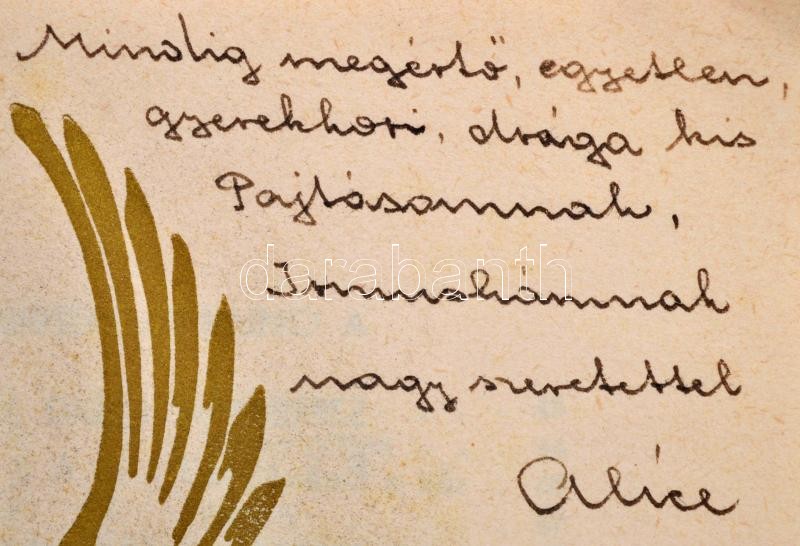 Mindig megértő, egyetlen,
gyerekkori, drága kis
Pajtásomnak,
darabanth
nagy szeretettel
Alice